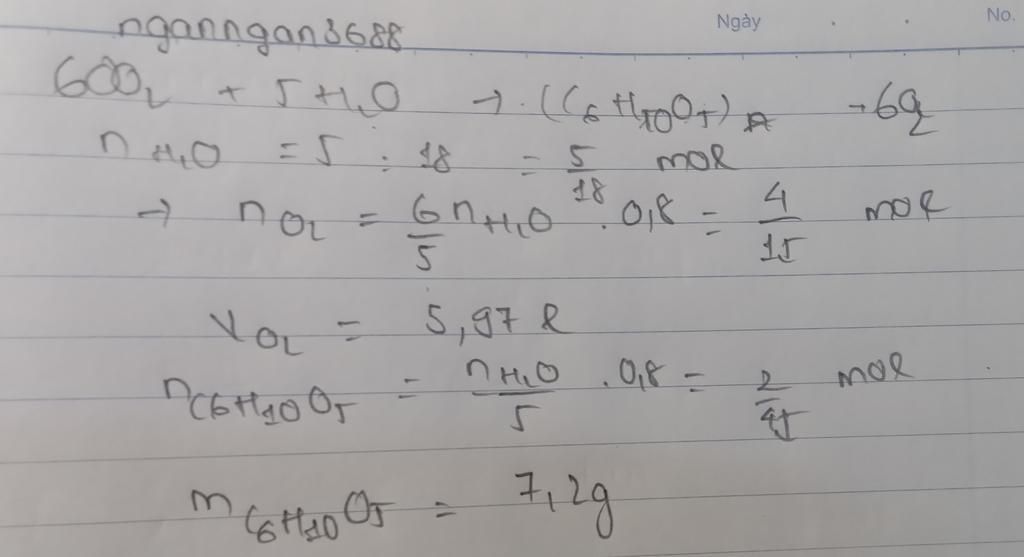 Ngày No.
nganngan 3688
6CO₂ + 5H₂O → (C₆H₁₀O₅) + 6O₂
n H₂O = 5 : 18 = 5/18 mol
→ n O₂ = 6/5 n H₂O . 0,8 = 4/15 mol
V O₂ = 5,97 l
n C₆H₁₀O₅ = n H₂O / 5 . 0,8 = 2/45 mol
m C₆H₁₀O₅ = 7,2g